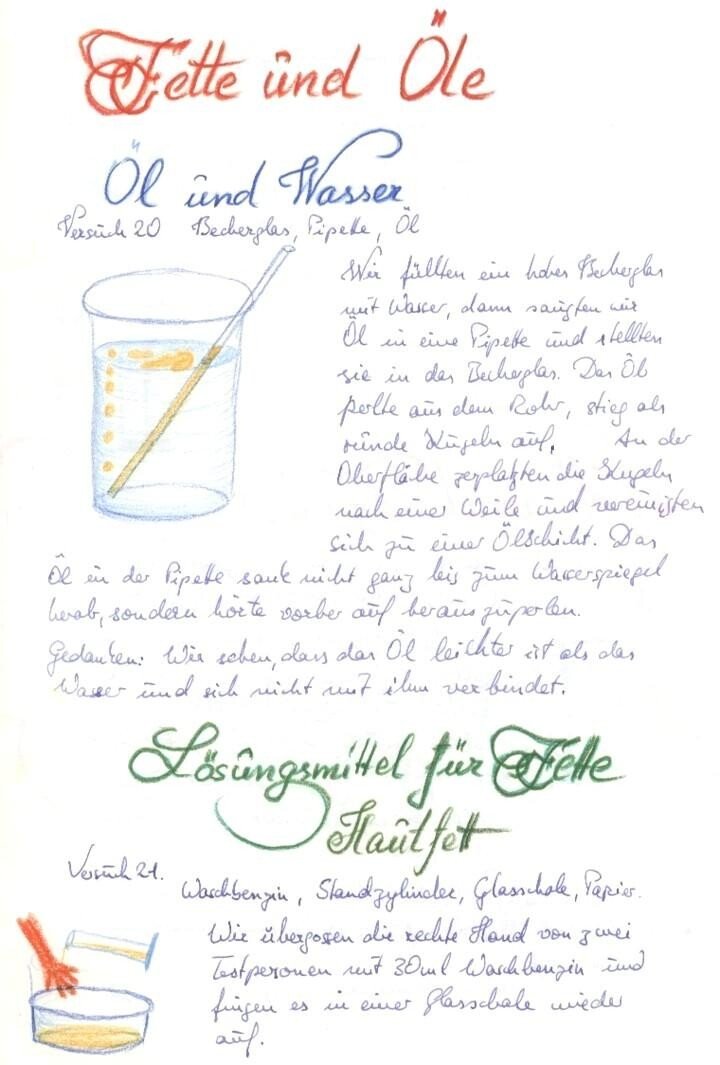 Fette und Öle
Öl und Wasser
Versuch 20 Becherglas, Pipette, Öl
Wir füllten ein hohes Becherglas
mit Wasser, dann saugten wir
Öl in eine Pipette und stellten
sie in das Becherglas. Das Öl
perlte aus dem Rohr, stieg als
runde Kugeln auf. An der
Oberfläche zerplatzten die Kugeln
nach einer Weile und vereinigten
sich zu einer Ölschicht. Das
Öl in der Pipette sank nicht ganz bis zum Wasserspiegel
herab, sondern hörte vorher auf herauszuperlen.
Gedanken: Wir sehen, dass das Öl leichter ist als das
Wasser und sich nicht mit ihm verbindet.
Lösungsmittel für Fette
Hautfett
Versuch 21.
Waschbenzin, Standzylinder, Glasschale, Papier.
Wir übergossen die rechte Hand von zwei
Testpersonen mit 30ml Waschbenzin und
fingen es in einer Glasschale wieder
auf.